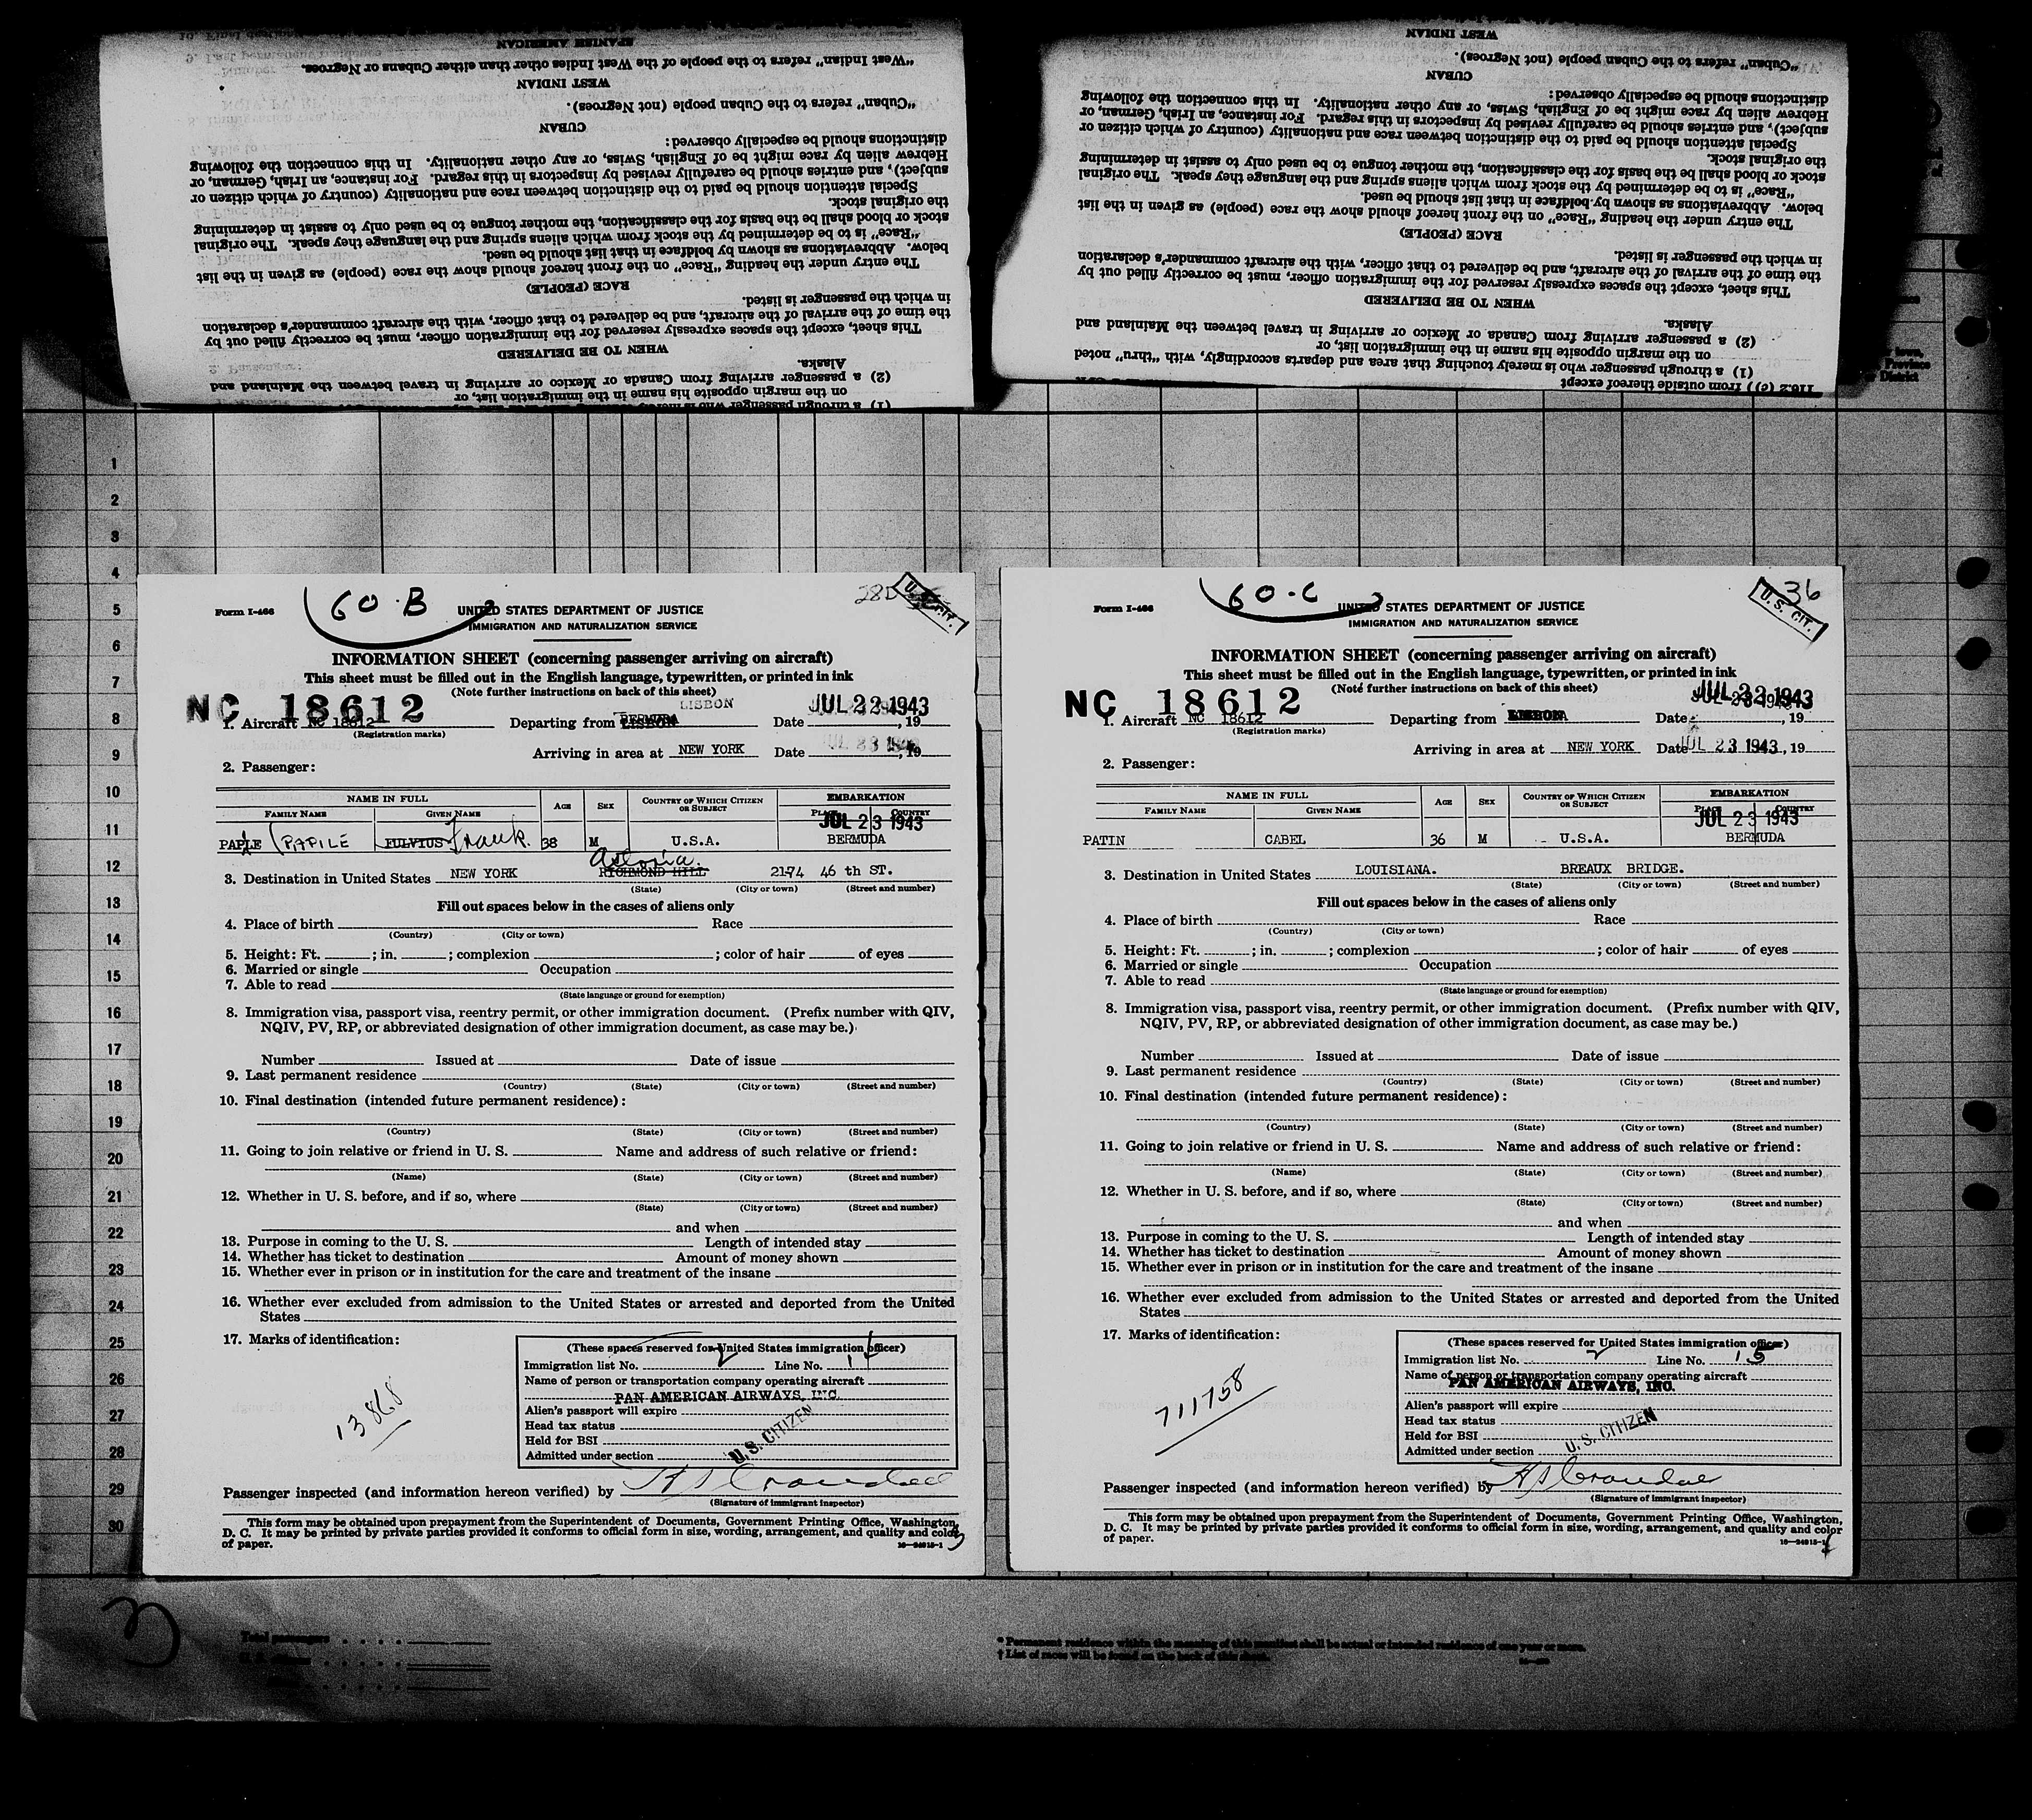 SPANISH AMERICAN
"West Indian" refers to the people of the West Indies other than either Cubans or Negroes.
WEST INDIAN
"Cuban" refers to the Cuban people (not Negroes).
CUBAN
distinctions should be especially observed:
Hebrew alien by race might be of English, Swiss, or any other nationality. In this connection the following
subject), and entries should be carefully revised by inspectors in this regard. For instance, an Irish, German, or
Special attention should be paid to the distinction between race and nationality (country of which citizen or
the original stock.
stock or blood shall be the basis for the classification, the mother tongue to be used only to assist in determining
"Race" is to be determined by the stock from which aliens spring and the language they speak. The original
below. Abbreviations as shown by boldface in that list should be used.
The entry under the heading "Race" on the front hereof should show the race (people) as given in the list
RACE (PEOPLE)
in which the passenger is listed.
the time of the arrival of the aircraft, and be delivered to that officer, with the aircraft commander's declaration
This sheet, except the spaces expressly reserved for the immigration officer, must be correctly filled out by
WHEN TO BE DELIVERED
Alaska.
(2) a passenger arriving from Canada or Mexico or arriving in travel between the Mainland and
on the margin opposite his name in the immigration list, or
WEST INDIAN
"Cuban" refers to the Cuban people (not Negroes).
CUBAN
distinctions should be especially observed:
Hebrew alien by race might be of English, Swiss, or any other nationality. In this connection the following
subject), and entries should be carefully revised by inspectors in this regard. For instance, an Irish, German, or
Special attention should be paid to the distinction between race and nationality (country of which citizen or
the original stock.
stock or blood shall be the basis for the classification, the mother tongue to be used only to assist in determining
"Race" is to be determined by the stock from which aliens spring and the language they speak. The original
below. Abbreviations as shown by boldface in that list should be used.
The entry under the heading "Race" on the front hereof should show the race (people) as given in the list
RACE (PEOPLE)
in which the passenger is listed.
the time of the arrival of the aircraft, and be delivered to that officer, with the aircraft commander's declaration
This sheet, except the spaces expressly reserved for the immigration officer, must be correctly filled out by
WHEN TO BE DELIVERED
Alaska.
(2) a passenger arriving from Canada or Mexico or arriving in travel between the Mainland and
on the margin opposite his name in the immigration list, or
(1) a through passenger who is merely touching that area and departs accordingly, with "thru" noted
from outside thereof except
Province
District
1
2
3
4
5
6
7
8
9
10
11
12
13
14
15
16
17
18
19
20
21
22
23
24
25
26
27
28
29
30
60-B
U.S. CIT.
Form I-466
UNITED STATES DEPARTMENT OF JUSTICE
IMMIGRATION AND NATURALIZATION SERVICE
INFORMATION SHEET (concerning passenger arriving on aircraft)
This sheet must be filled out in the English language, typewritten, or printed in ink
(Note further instructions on back of this sheet)
NC 18612
LISBON
JUL 22 1943
1. Aircraft NC 18612 Departing from Date , 19
(Registration marks)
Arriving in area at NEW YORK Date JUL 23 , 19
2. Passenger:
NAME IN FULL AGE SEX COUNTRY OF WHICH CITIZEN OR SUBJECT EMBARKATION
FAMILY NAME GIVEN NAME PLACE COUNTRY
JUL 23 1943
PAPILE FULVIUS Frank. 38 M U.S.A. BERMUDA
Astoria.
3. Destination in United States NEW YORK RICHMOND HILL 2174 46 th ST.
(State) (City or town) (Street and number)
Fill out spaces below in the cases of aliens only
4. Place of birth Race
(Country) (City or town)
5. Height: Ft. ; in. ; complexion ; color of hair of eyes
6. Married or single Occupation
7. Able to read
(State language or ground for exemption)
8. Immigration visa, passport visa, reentry permit, or other immigration document. (Prefix number with QIV,
NQIV, PV, RP, or abbreviated designation of other immigration document, as case may be.)
Number Issued at Date of issue
9. Last permanent residence
(Country) (State) (City or town) (Street and number)
10. Final destination (intended future permanent residence):
(Country) (State) (City or town) (Street and number)
11. Going to join relative or friend in U. S. Name and address of such relative or friend:
(Name) (State) (City or town) (Street and number)
12. Whether in U. S. before, and if so, where
(State) (City or town) (Street and number)
and when
13. Purpose in coming to the U. S. Length of intended stay
14. Whether has ticket to destination Amount of money shown
15. Whether ever in prison or in institution for the care and treatment of the insane
16. Whether ever excluded from admission to the United States or arrested and deported from the United
States
17. Marks of identification:
13868
(These spaces reserved for United States immigration officer)
Immigration list No. 2 Line No.
Name of person or transportation company operating aircraft
PAN AMERICAN AIRWAYS, INC.
Alien's passport will expire
Head tax status
Held for BSI
Admitted under section U.S. CITIZEN
Passenger inspected (and information hereon verified) by
(Signature of immigrant inspector)
This form may be obtained upon prepayment from the Superintendent of Documents, Government Printing Office, Washington,
D. C. It may be printed by private parties provided it conforms to official form in size, wording, arrangement, and quality and color
of paper.
16—24915-1
3
60-C
36
U.S. CIT.
Form I-466
UNITED STATES DEPARTMENT OF JUSTICE
IMMIGRATION AND NATURALIZATION SERVICE
INFORMATION SHEET (concerning passenger arriving on aircraft)
This sheet must be filled out in the English language, typewritten, or printed in ink
(Note further instructions on back of this sheet)
NC 18612
JUL 22 1943
1. Aircraft NC 18612 Departing from Date , 19
(Registration marks)
Arriving in area at NEW YORK Date JUL 23 1943, 19
2. Passenger:
NAME IN FULL AGE SEX COUNTRY OF WHICH CITIZEN OR SUBJECT EMBARKATION
FAMILY NAME GIVEN NAME PLACE COUNTRY
JUL 23 1943
PATIN CABEL 36 M U.S.A. BERMUDA
3. Destination in United States LOUISIANA. BREAUX BRIDGE.
(State) (City or town) (Street and number)
Fill out spaces below in the cases of aliens only
4. Place of birth Race
(Country) (City or town)
5. Height: Ft. ; in. ; complexion ; color of hair of eyes
6. Married or single Occupation
7. Able to read
(State language or ground for exemption)
8. Immigration visa, passport visa, reentry permit, or other immigration document. (Prefix number with QIV,
NQIV, PV, RP, or abbreviated designation of other immigration document, as case may be.)
Number Issued at Date of issue
9. Last permanent residence
(Country) (State) (City or town) (Street and number)
10. Final destination (intended future permanent residence):
(Country) (State) (City or town) (Street and number)
11. Going to join relative or friend in U. S. Name and address of such relative or friend:
(Name) (State) (City or town) (Street and number)
12. Whether in U. S. before, and if so, where
(State) (City or town) (Street and number)
and when
13. Purpose in coming to the U. S. Length of intended stay
14. Whether has ticket to destination Amount of money shown
15. Whether ever in prison or in institution for the care and treatment of the insane
16. Whether ever excluded from admission to the United States or arrested and deported from the United
States
17. Marks of identification:
711758
(These spaces reserved for United States immigration officer)
Immigration list No. 2 Line No. 15
Name of person or transportation company operating aircraft
PAN AMERICAN AIRWAYS, INC.
Alien's passport will expire
Head tax status
Held for BSI
Admitted under section U.S. CITIZEN
Passenger inspected (and information hereon verified) by
(Signature of immigrant inspector)
This form may be obtained upon prepayment from the Superintendent of Documents, Government Printing Office, Washington,
D. C. It may be printed by private parties provided it conforms to official form in size, wording, arrangement, and quality and color
of paper.
16—24915-1
Total passengers
* Permanent residence within the meaning of this manifest shall be actual or intended residence of one year or more.
† List of races will be found on the back of this sheet.